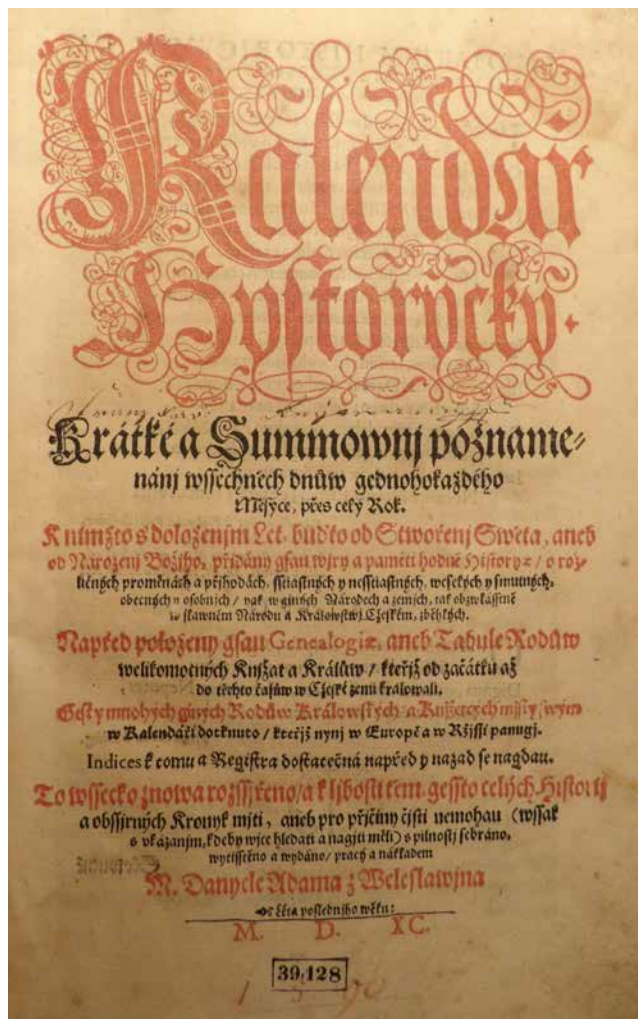 Kalendář
Hystorycký.
Krátké a Summownj pozname-
nánj wssechněch dnůw gednohokaždého
Měsýce, přes celý Rok.
K nimžto s doloženjm Let, buďto od Stwořenj Swěta, aneb
od Narozenj Božjho, přidány gsau wjry a paměti hodné Historyæ / o roz-
ličných proměnách a přjhodách, sstiastných y nesstiastných, weselých y smutných,
obecných y osobnjch / yak w giných Národech a zemjch, tak obzwlásstně
w slawném Národu a Králowstwj Cžeském, zběhlých.
Napřed položeny gsau Genealogiæ, aneb Tabule Rodůw
welikomocných Knjžat a Králůw / kteřjž od začátku až
do těchto časůw w Cžeské zemi kralowali.
Gest y mnohých giných Rodůw Králowských a Knjžetcých mjsty swým
w Kalendáři dotknuto / kteřjž nynj w Europě a w Ržjssi panugj.
Indices k tomu a Registra dostatečná napřed y nazad se nagdau.
To wssecko znowa rozssjřeno / a k ljbosti těm, gessto celých Historij
a obssjrných Kronyk mjti, aneb pro přjčiny čjsti nemohau (wssak
s vkázanjm, kdeby wjce hledati a nagjti měli) s pilnostj sebráno,
wytisstěno a wydáno / pracý a nákladem
M. Danyele Adama z Weleslawjna
Léta poslednjho wěku:
M. D. XC.
39.128
1590